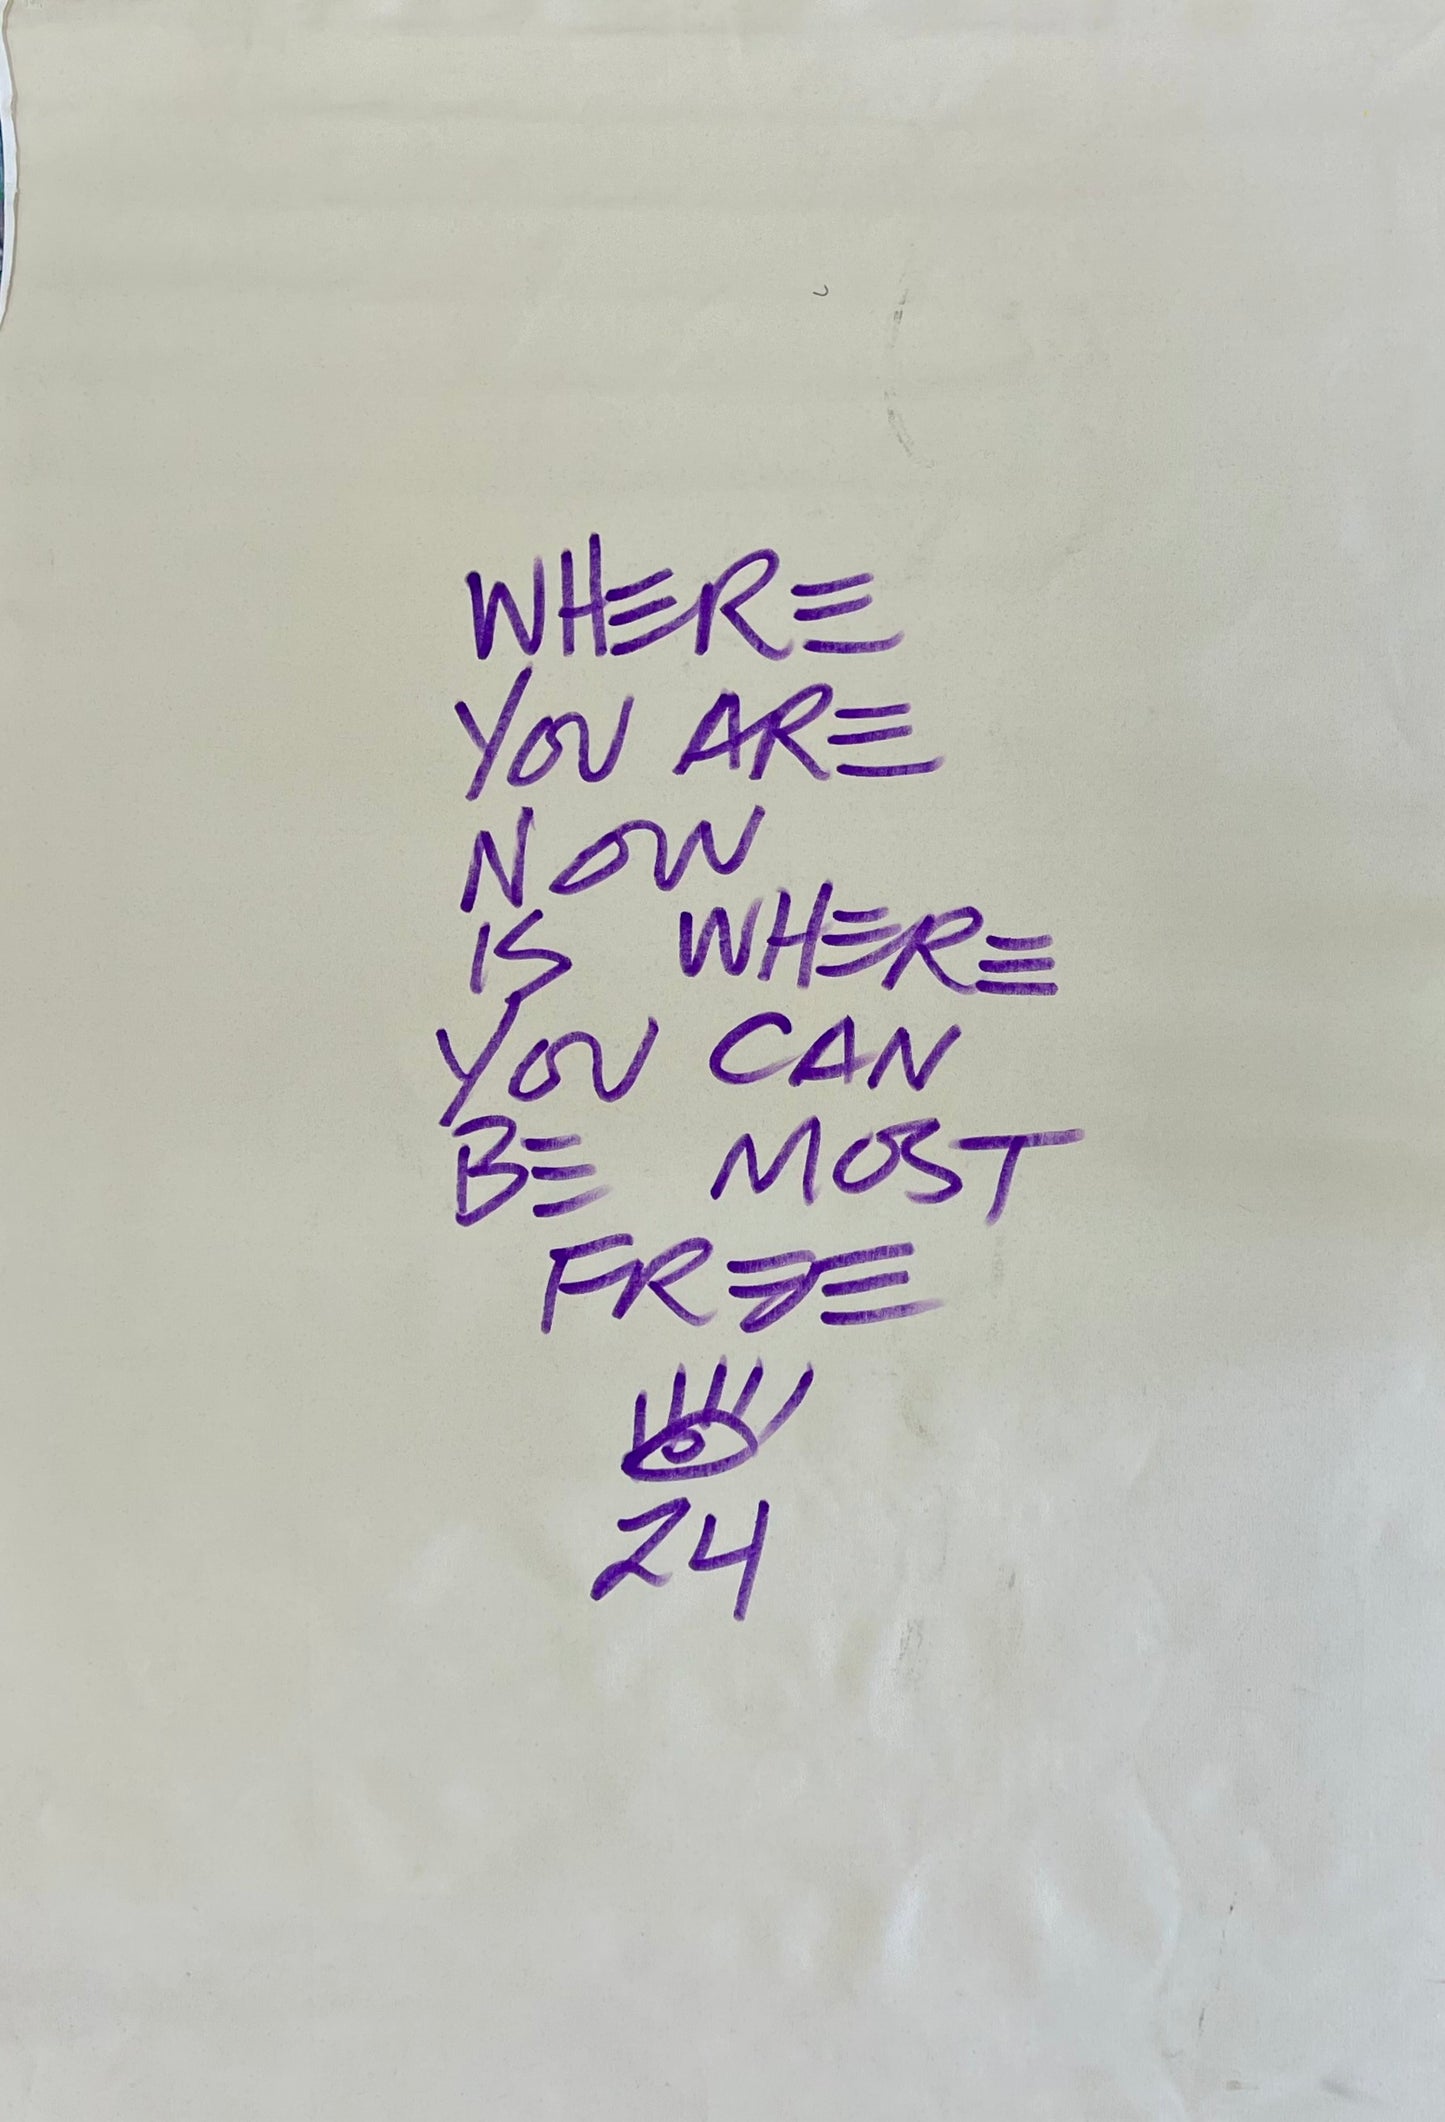 WHERE
YOU ARE
NOW
IS WHERE
YOU CAN
BE MOST
FREE
24